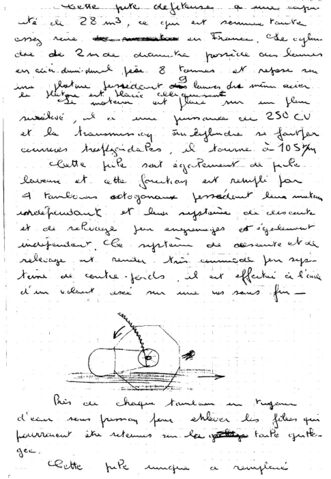 Cette pile défileuse a une capa
cité de 28 m3, ce qui est
assez rare en France. Le cylin
dre de 2 m de diamètre possède aux lames
en acier dur pèse 8 tonnes et repose sur
une platine possédant 9 lames de même acier
la platine est placée
Le moteur est placé sur un plan
surélevé, il a une puissance de 250 CV
et la transmission au cylindre se fait par
courroies trapézoïdales, il tourne à 105
Cette pile sert également de pile
laveuse et cette fonction est remplie par
4 tambours octogonaux possédant leur moteur
indépendant et leur système de descente
et de relevage par engrenages également
indépendant. Ce système de descente et de
relevage est rendu très commode par sys
tème de contre-poids, il est effectué à l'aide
d'un volant axé sur une vis sans fin
Près de chaque tambour un tuyau
d'eau sous pression pour enlever les fibres qui
pourraient être retenues sur la toile
Cette pile unique a remplacé